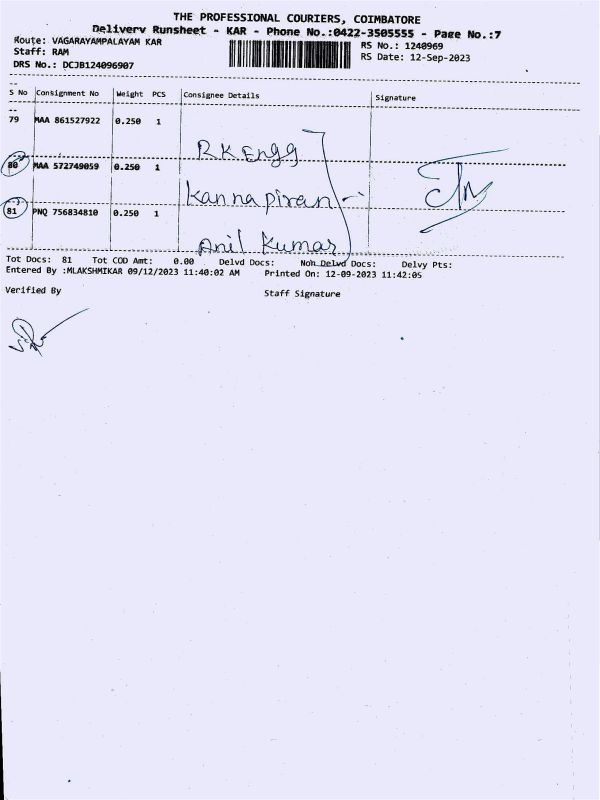 THE PROFESSIONAL COURIERS, COIMBATORE
Delivery Runsheet - KAR - Phone No.:0422-3505555 - Page No.:7
Route: VAGARAYAMPALAYAM KAR
RS No.: 1240969
Staff: RAM
RS Date: 12-Sep-2023
DRS No.: DCJB124096907
S No Consignment No Weight PCS Consignee Details Signature
79 MAA 861527922 0.250 1
R.K Engg
80 MAA 572749059 0.250 1
Kannapiran
81 PNQ 756834810 0.250 1
Anil Kumar
Tot Docs: 81 Tot COD Amt: 0.00 Delvd Docs: Non Delvd Docs: Delvy Pts:
Entered By :MLAKSHMIKAR 09/12/2023 11:40:02 AM Printed On: 12-09-2023 11:42:05
Verified By Staff Signature